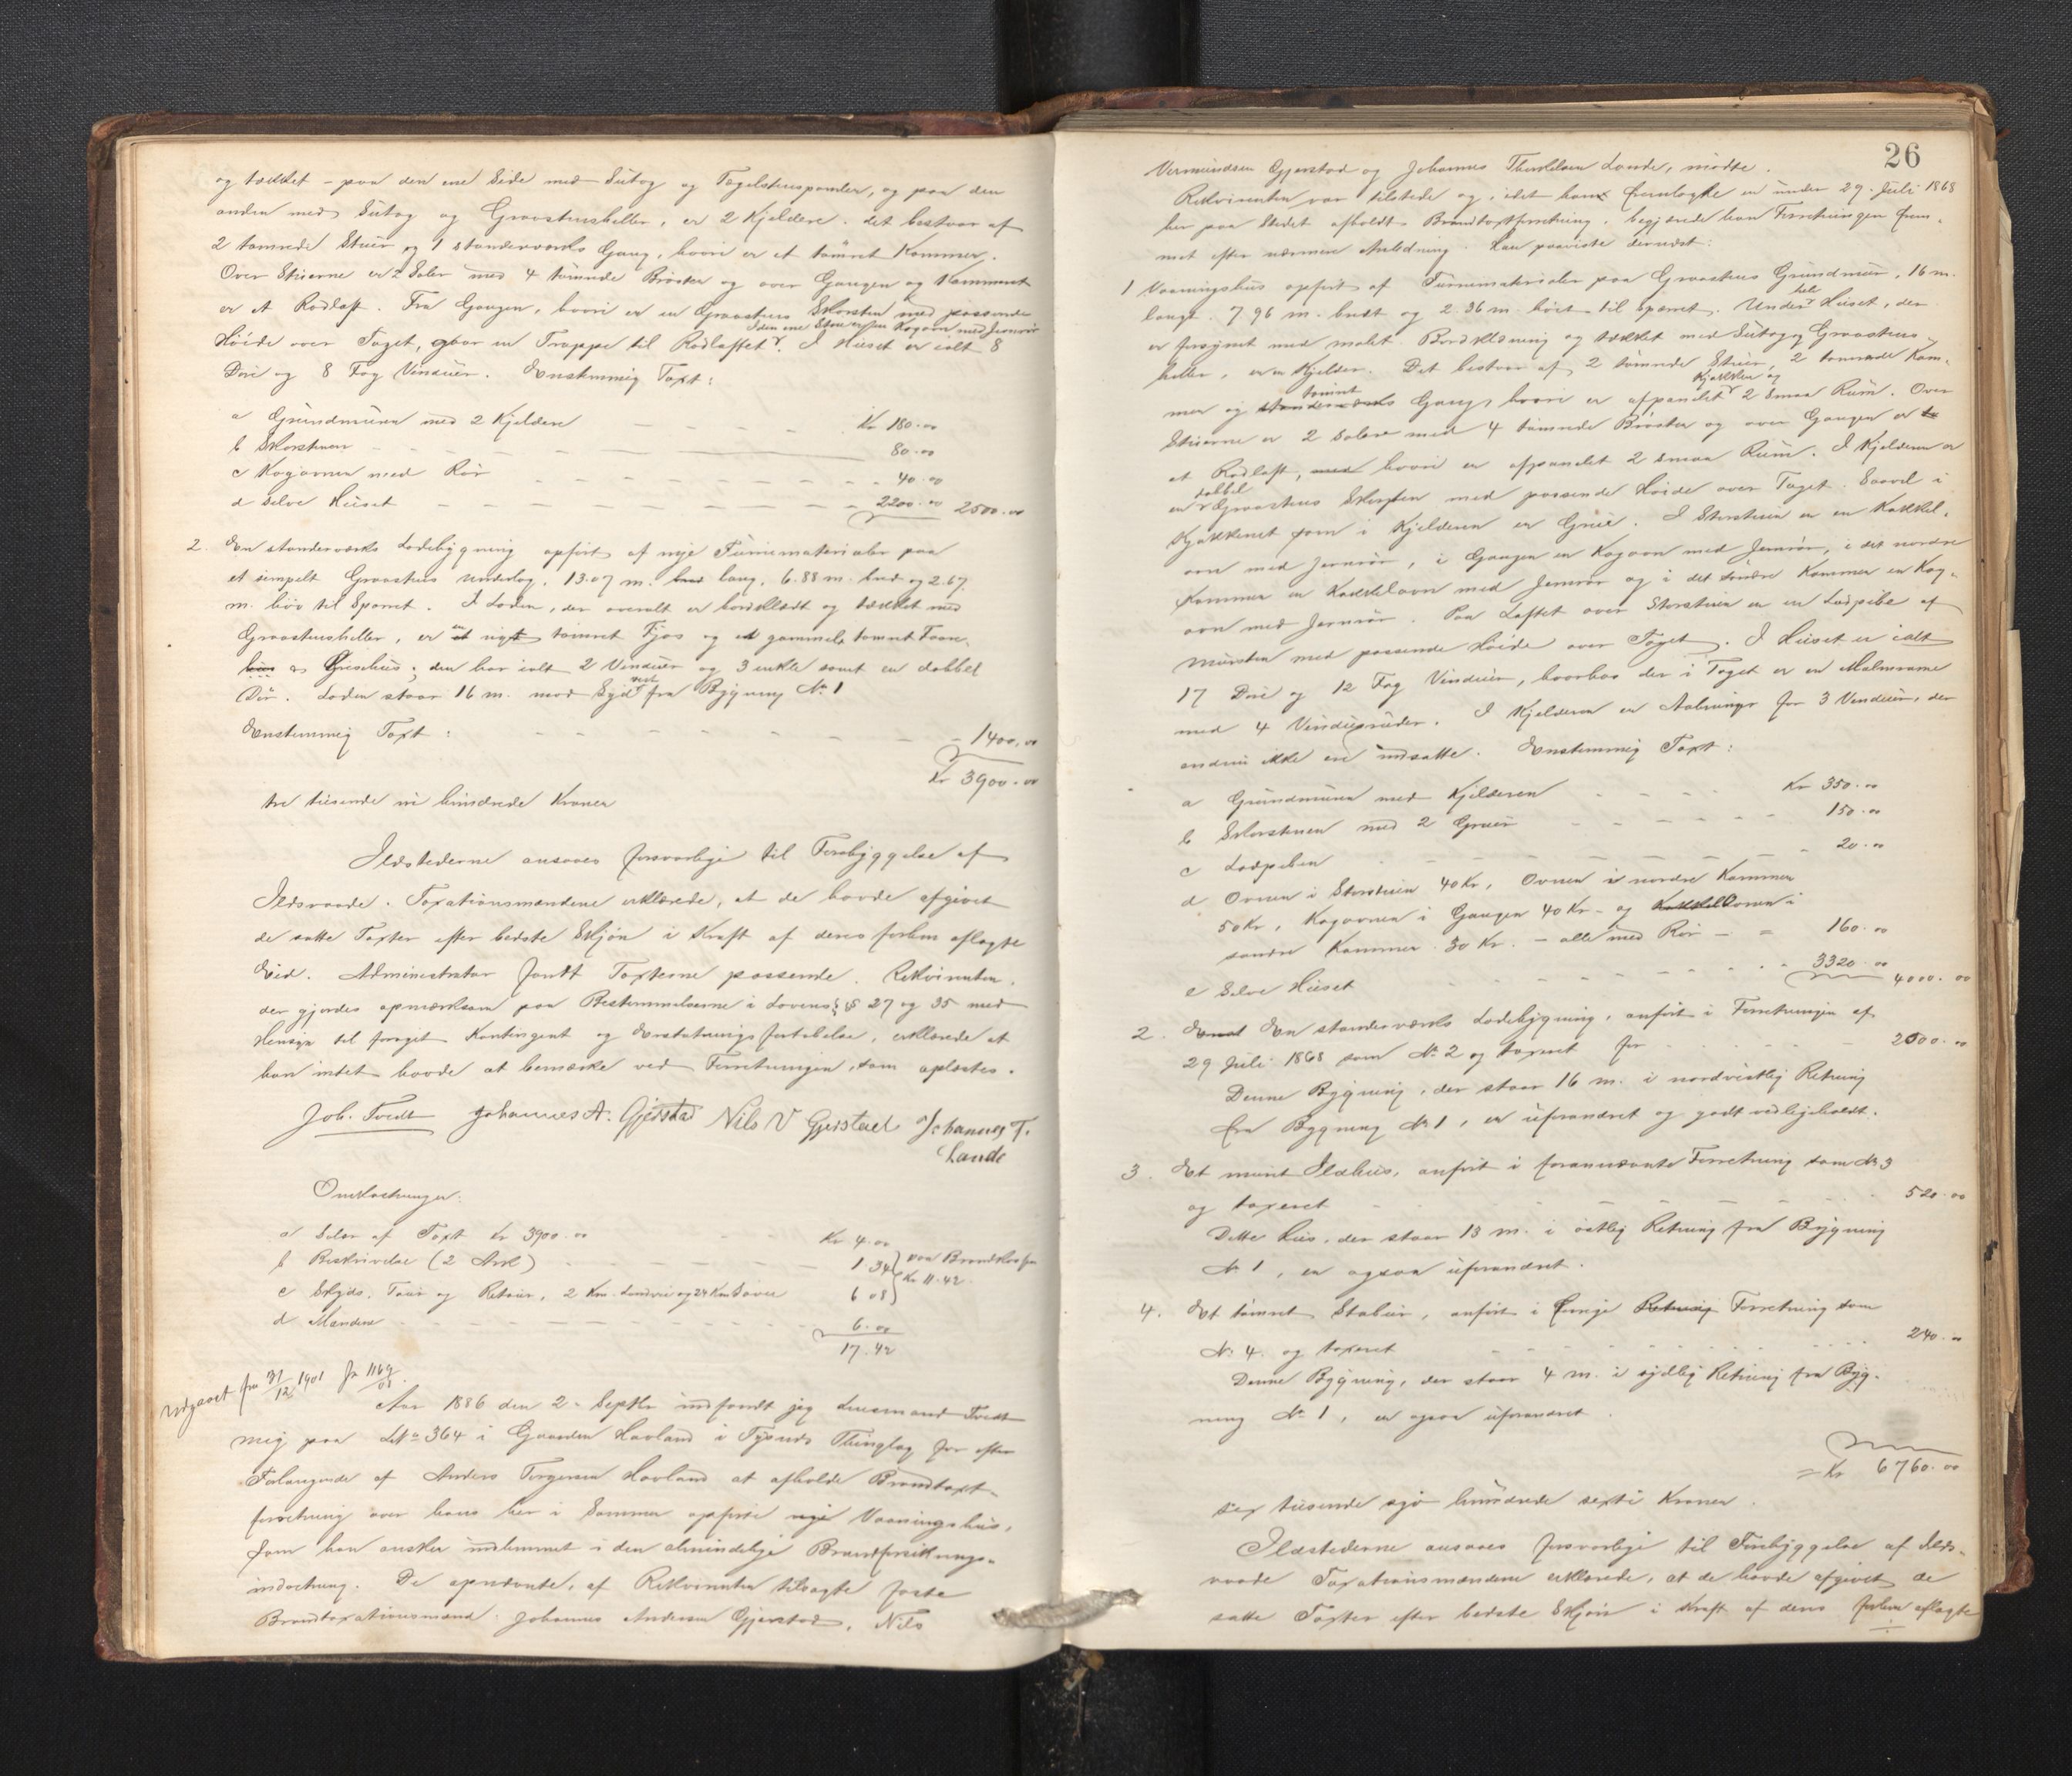 og tækket – paa den ene Side med Sutag og Tagelsteenspander, og paa den
anden med Sutag og Graasteensheller, er 2 Kjeldere. det bestaar af
2 tømrede Stuer og 1 standerværks Gang, hvori er et tømret Kammer.
Over Stuerne er 2 Saler med 4 tømrede Brøster og over Gangen og Kammeret
er et Rødloft. Fra Gangen, hvori er en Graasteens Skorsten med passende
I den ene Stue er en Kogovn med Jernrør
Høide over Taget, gaar en Trappe til Rødloftet. I Huset er ialt 8
Døre og 8 Fag Vinduer. Enstemmig Taxt:
a Grundmuren med 2 Kjeldere – – – – Kr 180.00
b Skorstenen – – – – 80.00
c Kogovnen med Rør – – – – 40.00
d Selve Huset – – – – 2200.00 2500.00
2. En standerværks Ladebygning opført af nye Furumaterialer paa
et simpelt Graasteens Underlag, 13.07 m. lang, 6.88 m. bred og 2.67
m. høi til Sparret. I Laden, der overalt er bordklædt og tækket med
Graasteensheller, er et nyt tømret Fjøs og et gammelt tømret Faare-
hus og Grisehus; den har ialt 2 Vinduer og 3 enkle samt en dobbel
Dør. Laden staar 16 m. mod Sydvest fra Bygning No 1
Enstemmig Taxt: – – – – 1400.00
Kr 3900.00
tre tusende ni hundrede Kroner
Ildstederne ansaaes forsvarlige til Forebyggelse af
Ildsvaade. Taxationsmændene erklærede, at de havde afgivet
de satte Taxter efter bedste Skjøn i Kraft af deres forhen aflagte
Eid. Administrator fandt Taxterne passende. Rekvirenten,
der gjordes opmærksom paa Bestemmelserne i Lovens §§ 27 og 35 med
Hensyn til forøget Kontingent og Erstatnings fortabelse, erklærede at
han intet havde at bemærke ved Forretningen, som oplæstes.
Joh. Tvedt Johannes A. Gjerstad Nils V Gjerstad Johannes T.
Lande
Omkostninger:
a Salær af Taxt Kr 3900.00 Kr 4.00
b Beskrivelse (2 Ark) – – – – 1 34 paa Brandkassen
c Skyds, Tour og Retour, 2 Km. Landvei og 24 Km Søvei 6 08 Kr 11.42
d Mændene – – – – 6.00
17.42
Udgaaet fra 31/12 1901 Jr 1169/01.
Aar 1886 den 2. Septbr indfandt jeg Lensmand Tvedt
mig paa LNo 364 i Gaarden Havland i Fysuds Thinglag for efter
Forlangende af Anders Torgersen Havland at afholde Brandtaxt-
forretning over hans her i Sommer opførte nye Vaaningshus,
som han ønsker indlemmet i den almindelige Brandforsikrings-
indretning. De opnævnte, af Rekvirenten tilsagte faste
Brandtaxationsmænd: Johannes Andersen Gjerstad, Nils
26
Vermundsen Gjerstad og Johannes Thorkelsen Lande, mødte.
Rekvirenten var tilstede og, idet han fremlagte en under 29. Juli 1868
her paa Stedet afholdt Brandtaxtforretning, begjærede han Forretningen frem-
met efter nærmere Anledning. Han paaviste dernæst:
1 Vaaningshus opført af Furumaterialer paa Graasteens Grundmur, 16 m.
langt, 7.96 m. bredt og 2.36 m. høit til Sparret. Under hele Huset, der
er forsynet med malet Bordklædning og tækket med Sutag og Graasteens-
heller, er en Kjelder. Det bestaar af 2 tømrede Stuer, 2 tømrede Kam-
mer og standerværks tømret Gang, hvori er afpanelet Kjøkken og 2 smaa Rum. Over
Stuerne er 2 Saler med 4 tømrede Brøster og over Gangen er
et Rødloft, med hvori er afpanelet 2 smaa Rum. I Kjelderen er
en dobbel Graasteens Skorsten med passende Høide over Taget. Saavel i
Kjøkkenet som i Kjelderen er Grue. I Storstuen er en Kakkel-
ovn med Jernrør, i Gangen en Kogovn med Jernrør, i det nordre
Kammer en Kakkelovn med Jernrør og i det søndre Kammer en Kog-
ovn med Jernrør. Paa Loftet over Storstuen er en Ladpibe af
Mursten med passende Høide over Taget. I Huset er ialt
17 Døre og 12 Fag Vinduer, hvorhos der i Taget er en Malmrame
med 4 Vinduesruder. I Kjelderen er Aabninger for 3 Vinduer, der
endnu ikke ere indsatte. Enstemmig Taxt:
a Grundmuren med Kjelderen – – – – Kr 350.00
b Skorstenen med 2 Gruer – – – – 150.00
c Ladpiben – – – – 20.00
d Ovnen i Storstuen 40 Kr, Ovnen i nordre Kammer
50 Kr, Kogovnen i Gangen 40 Kr. og Kakkel Ovnen i
søndre Kammer 30 Kr. – alle med Rør – = 160.00
e Selve Huset – – – – 3320.00 4000.00
2. En standerværks Ladebygning, anført i Forretningen af
29 Juli 1868 som No 2 og taxeret for – – – – 2000.00
Denne Bygning, der staar 16 m. i nordvestlig Retning
fra Bygning No 1, er uforandret og godt vedligeholdt.
3. Et muret Ildhus, anført i forannævnte Forretning som No 3
og taxeret – – – – 520.00
Dette Hus, der staar 13 m. i østlig Retning fra Bygning
No 1, er ogsaa uforandret.
4. Et tømret Stabur, anført i forrige Retning Forretning som
No 4. og taxeret – – – – 240.00
Denne Bygning, der staar 4 m. i sydlig Retning fra Byg-
ning No 1, er ogsaa uforandret.
= Kr 6760.00
sex tusende syv hundrede sexti Kroner.
Ildstederne ansaaes forsvarlige til Forebyggelse af Ilds-
vaade Taxationsmændene erklærede, at de havde afgivet de
satte Taxter efter bedste Skjøn i Kraft af deres forhen aflagte